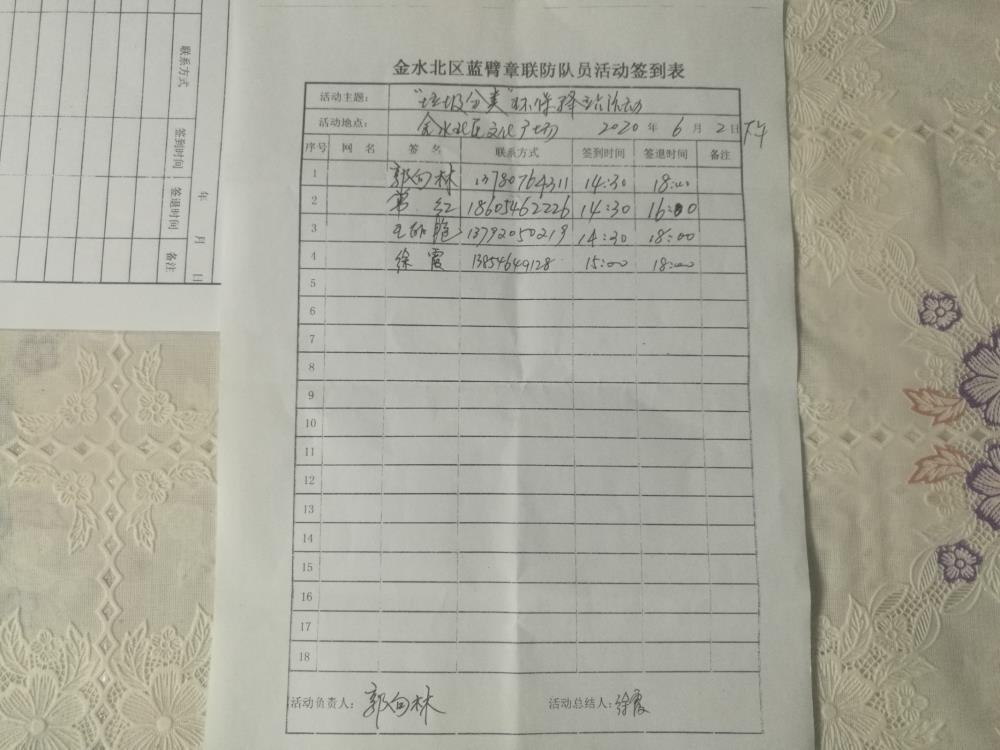 金水北区蓝臂章联防队员活动签到表
活动主题： "垃圾分类"环保 活动
活动地点： 金水北区文化广场 2020年6月2日下午
序号 网名 签名 联系方式 签到时间 签退时间 备注
1 郭向林 13780764311 14:30 18:00
2 常红 18605462226 14:30 16:00
3 13792050219 14:30 18:00
4 徐霞 13854649128 15:00 18:00
5
6
7
8
9
10
11
12
13
14
15
16
17
18
活动负责人：郭向林 活动总结人：徐霞
联系方式 签到时间 签退时间 备注
年 月 日